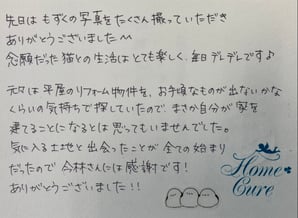 先日はもずくの写真をたくさん撮っていただき
ありがとうございました^^
念願だった猫との生活はとても楽しく、毎日デレデレです♪
元々は平屋のリフォーム物件を、お手頃なものが出ないかな
くらいの気持ちで探していたので、まさか自分が家を
建てることになるとは思ってもいませんでした。
気に入る土地と出会ったことが全ての始まり
だったので今林さんには感謝です!
ありがとうございました!!
Home
Cure